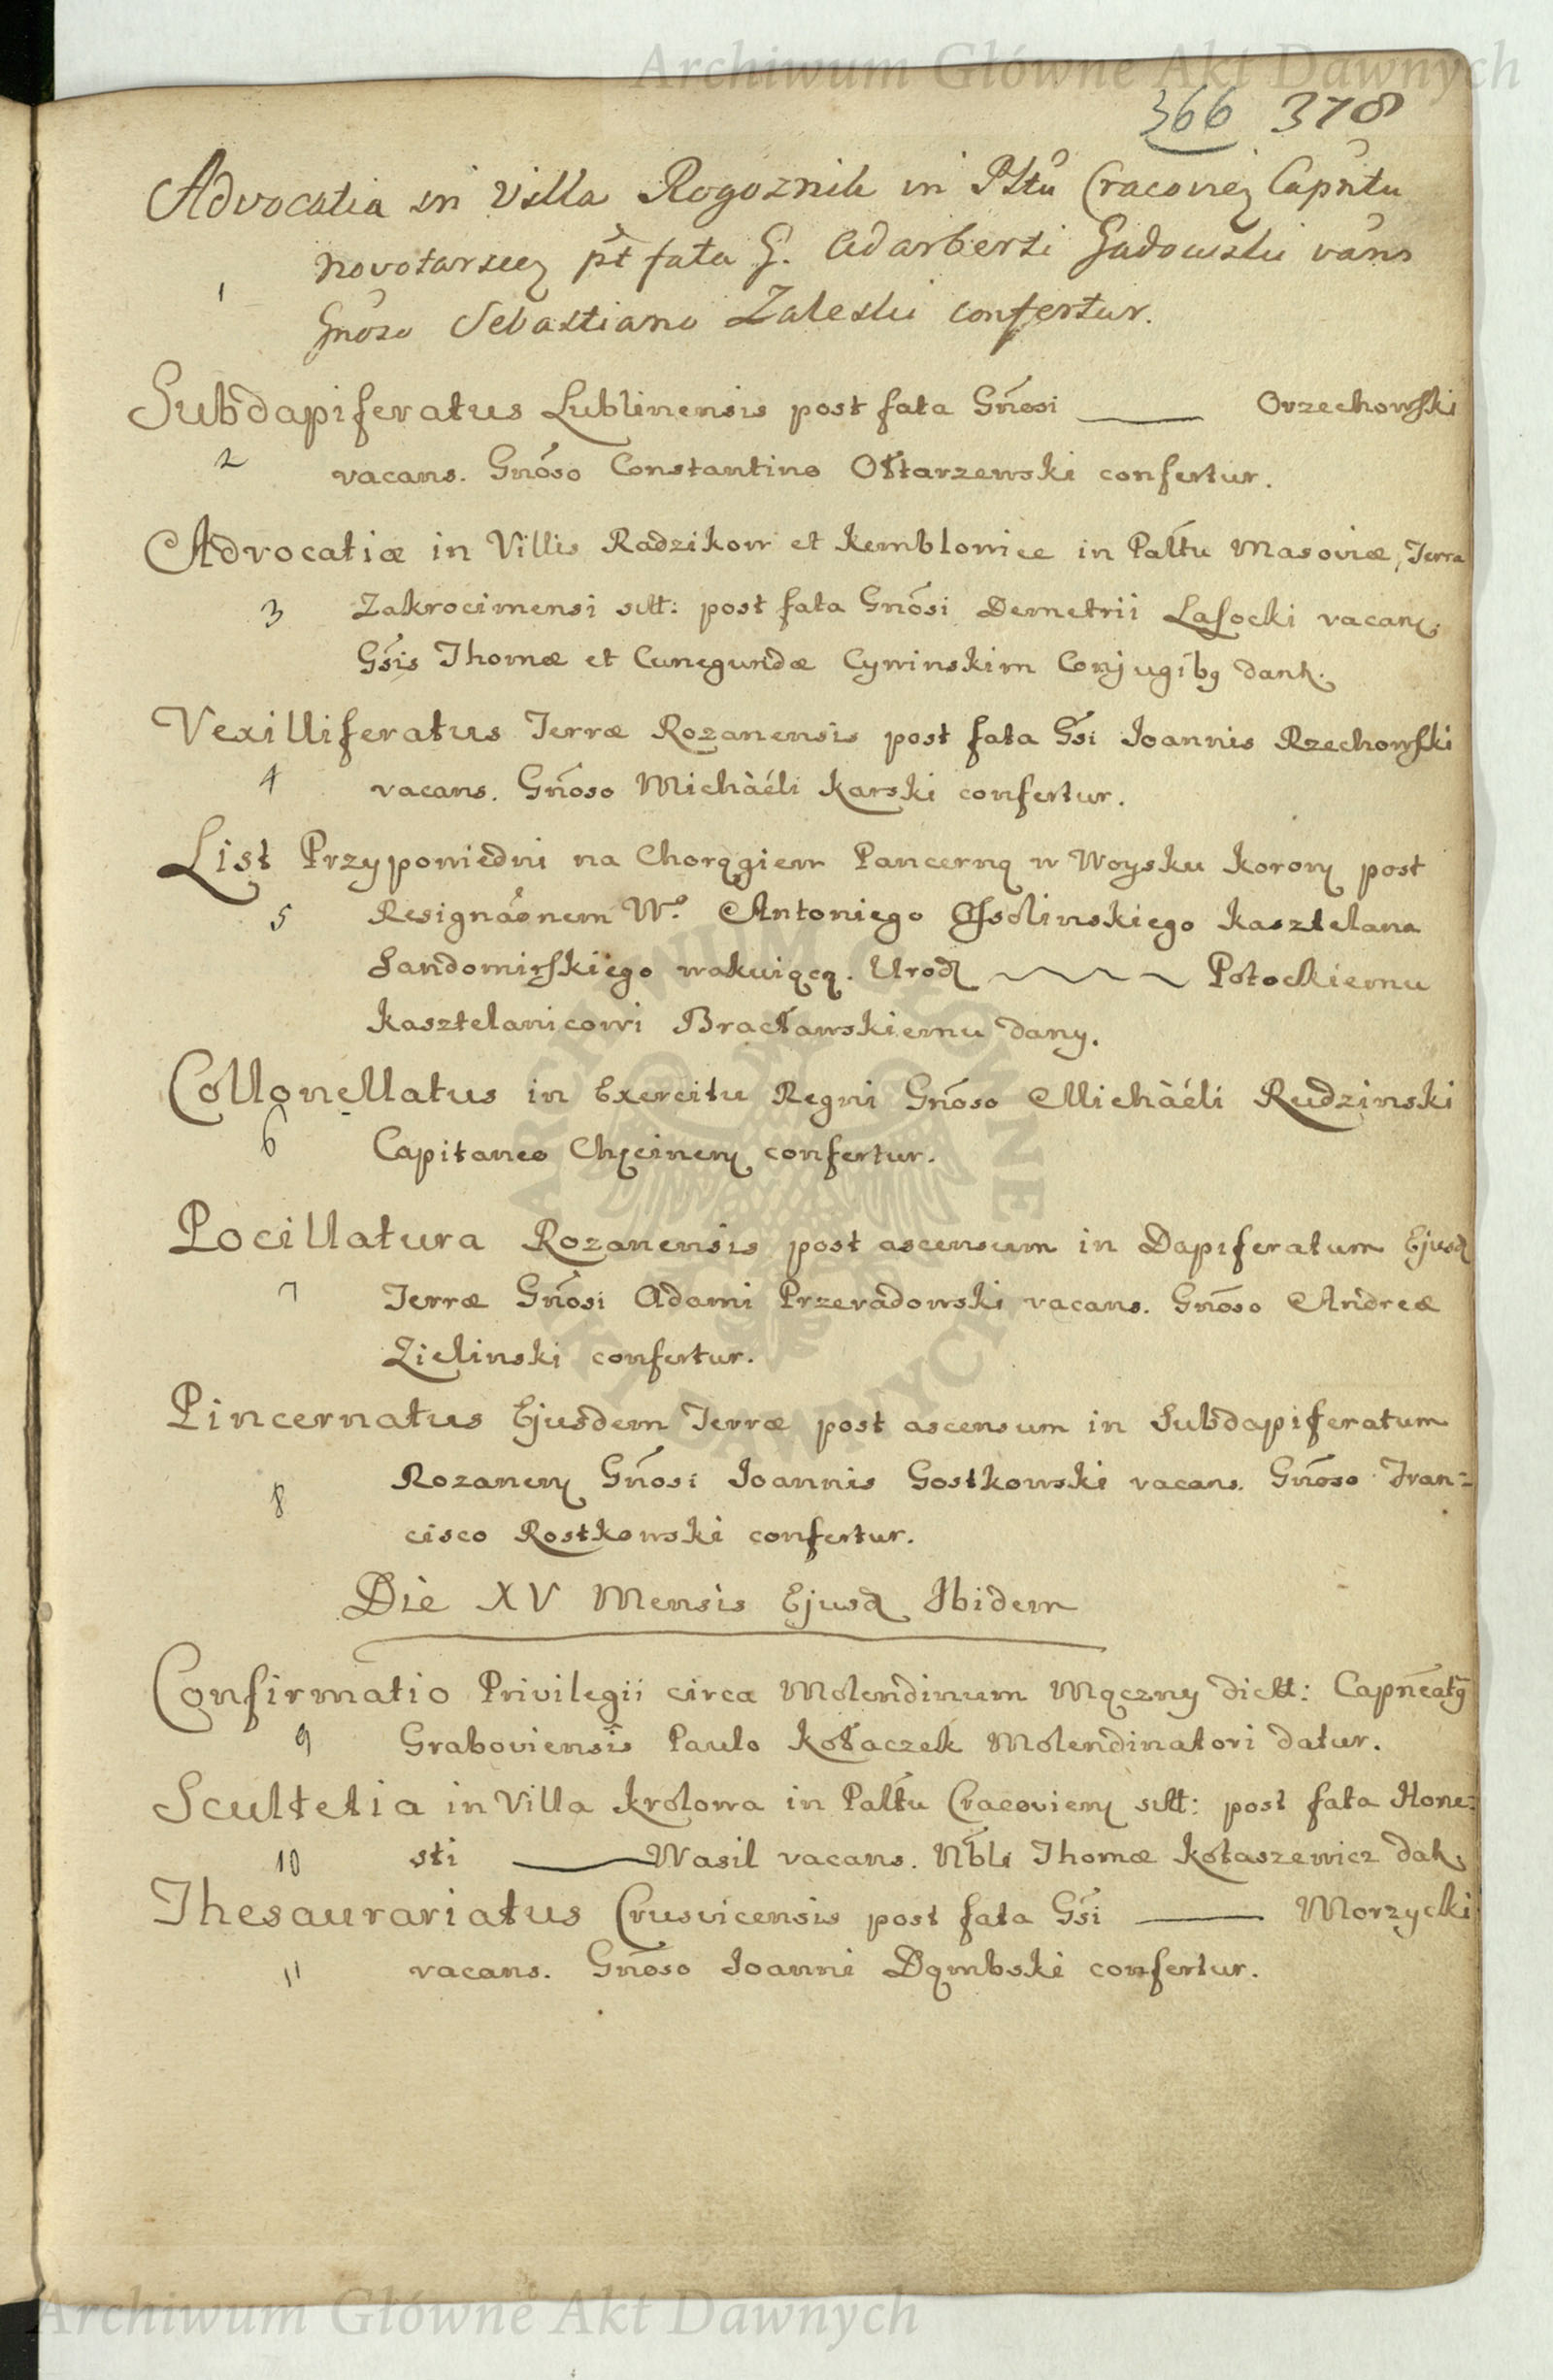 Archiwum Główne Akt Dawnych
366 378
Advocatia in Villa Rogoznik in Pltu Cracovien Capntu
1 novotarscen pt fata G. Adarberti Gadowski vans
Gnoso Sebastiano Zaleski confertur.
Subdapiferatus Lublinensis post fata Gnosi ——— Orzechowski
2 vacans. Gnoso Constantino Ostarzewski confertur.
Advocatiæ in Villis Radzikow et Kemblowice in Paltu Masoviæ, Terra
3 Zakrocimensi sitt: post fata Gnosi Demetrii Lasocki vacan.
Gsis Thomæ et Cunegundæ Cywinskim Conjugibq dant.
Vexilliferatus Terræ Rozanensis post fata Gsi Joannis Rzechowski
4 vacans. Gnoso Michàéli Karski confertur.
List Przypowiedni na Chorągiew Pancerną w Woysku Koron post
5 Resignaonem Wo. Antoniego Ossolinskiego Kasztelana
Sandomirskiego wakuiącą. Urodz ~~~ Potockiemu
Kasztelanicowi Bracławskiemu dany.
Collonellatus in Exercitu Regni Gnoso Michàéli Rudzinski
6 Capitaneo Chęcinen confertur.
Pocillatura Rozanensis post ascensum in Dapiferatum Ejusd
7 Terræ Gnosi Adami Przeradowski vacans. Gnoso Andreæ
Zielinski confertur.
Pincernatus Ejusdem Terræ post ascensum in Subdapiferatum
8 Rozanen Gnosi Joannis Gostkowski vacans. Gnoso Fran=
cisco Rostkowski confertur.
Die XV Mensis Ejusd Ibidem
Confirmatio Privilegii circa Molendinum Mączny dictt: Capneatq
9 Graboviensis Paulo Kołaczek Molendinatori datur.
Scultetia in Villa Krolowa in Paltu Cracovien sitt: post fata Hone=
10 sti ——— Wasil vacans. Nbli Thomæ Kołaszewicz dat.
Thesaurariatus Crusvicensis post fata Gsi ——— Morzycki
11 vacans. Gnoso Joanni Dąmbski confertur.
ARCHIWUM GŁÓWNE AKT DAWNYCH
Archiwum Główne Akt Dawnych